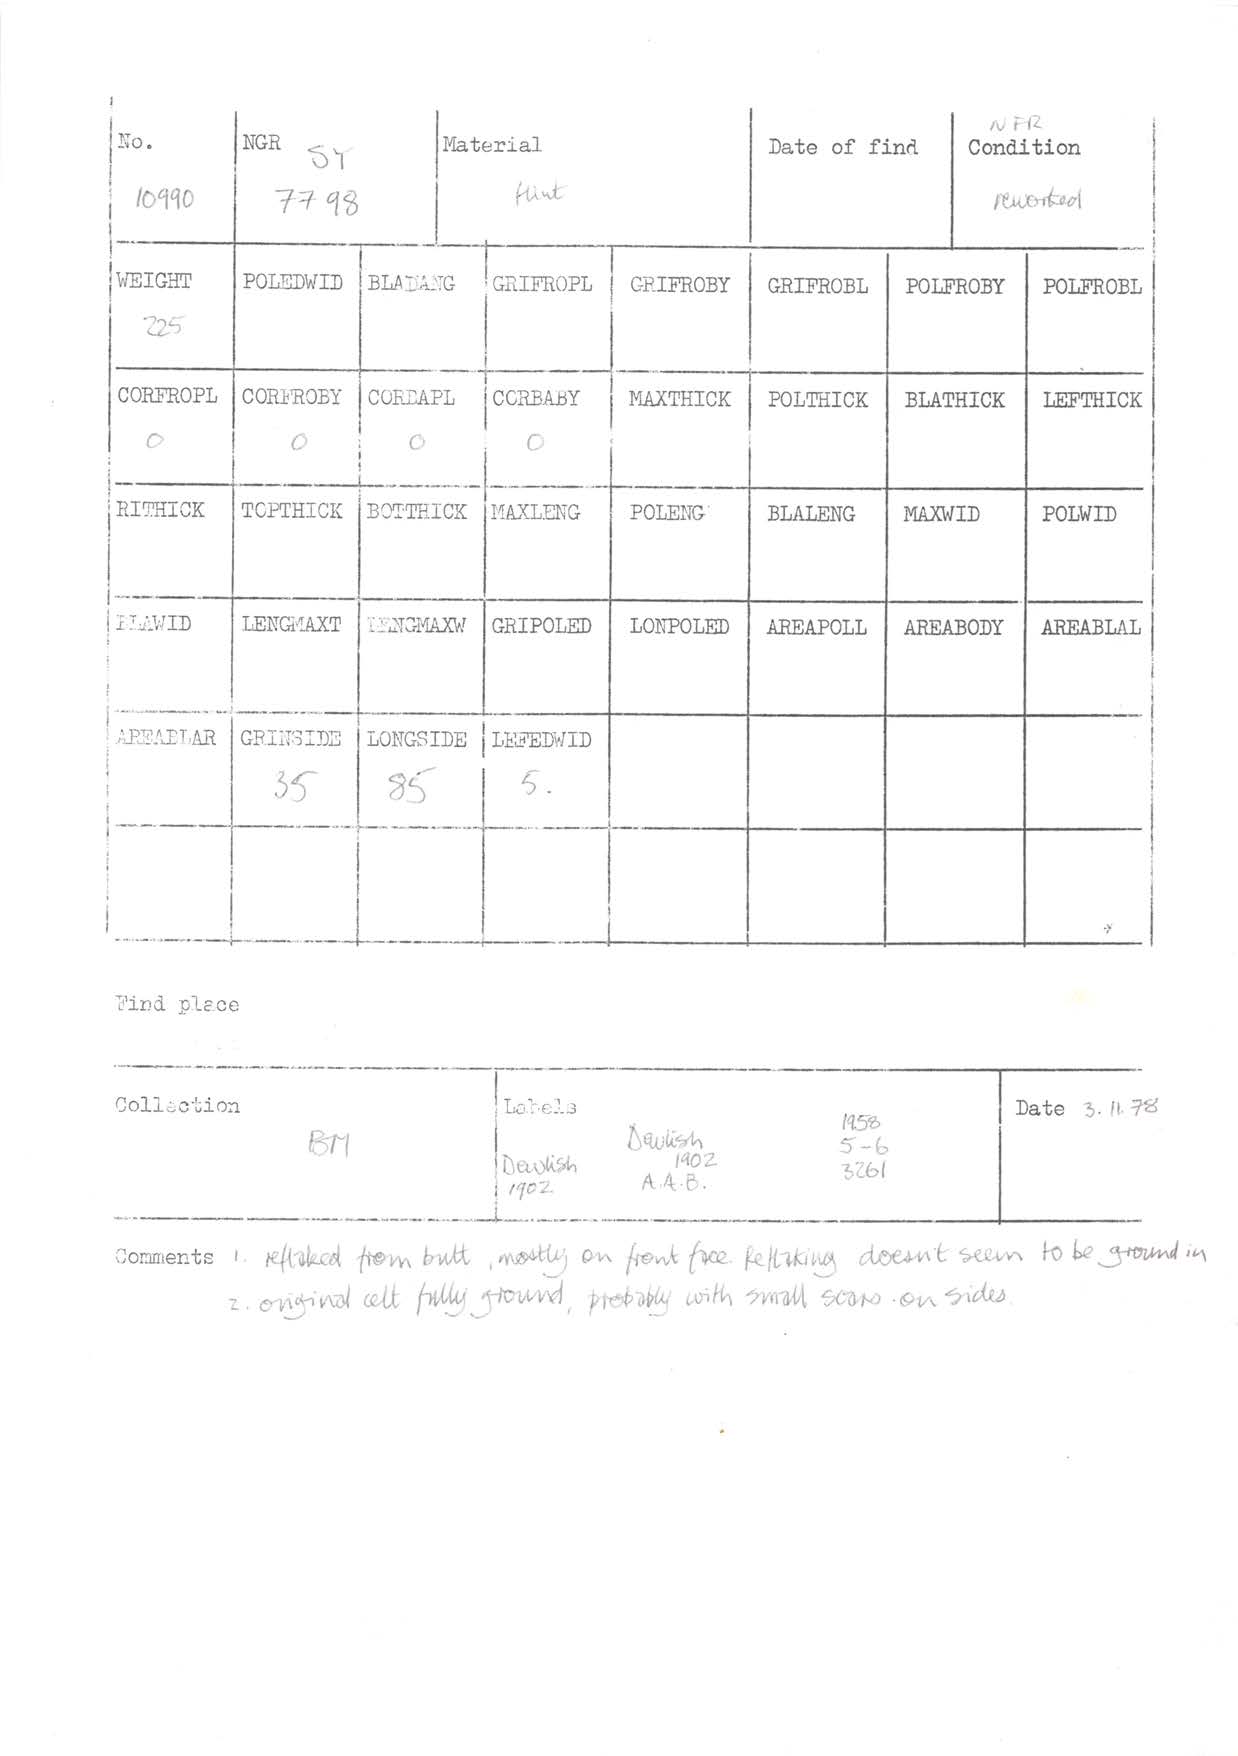 No. NGR SY Material Date of find NFR Condition
10990 7798 flint reworked
WEIGHT POLEDWID BLADANG GRIFROPL GRIFROBY GRIFROBL POLFROBY POLFROBL
225
CORFROPL CORFROBY CORBAPL CORBABY MAXTHICK POLTHICK BLATHICK LEFTHICK
0 0 0 0
RITHICK TOPTHICK BOTTHICK MAXLENG POLENG BLALENG MAXWID POLWID
BLAWID LENGMAXT LENGMAXW GRIPOLED LONPOLED AREAPOLL AREABODY AREABLAL
AREABLAR GRINSIDE LONGSIDE LEFEDWID
35 85 5.
Find place
Collection Labels Date 3.11.78
BM
Dewlish
1902
Dewlish
1902
A.A.B.
1958
5-6
3261
Comments 1. reflaked from butt, mostly on front face. Reflaking doesn't seem to be ground in
2. original celt fully ground, probably with small scars on sides.